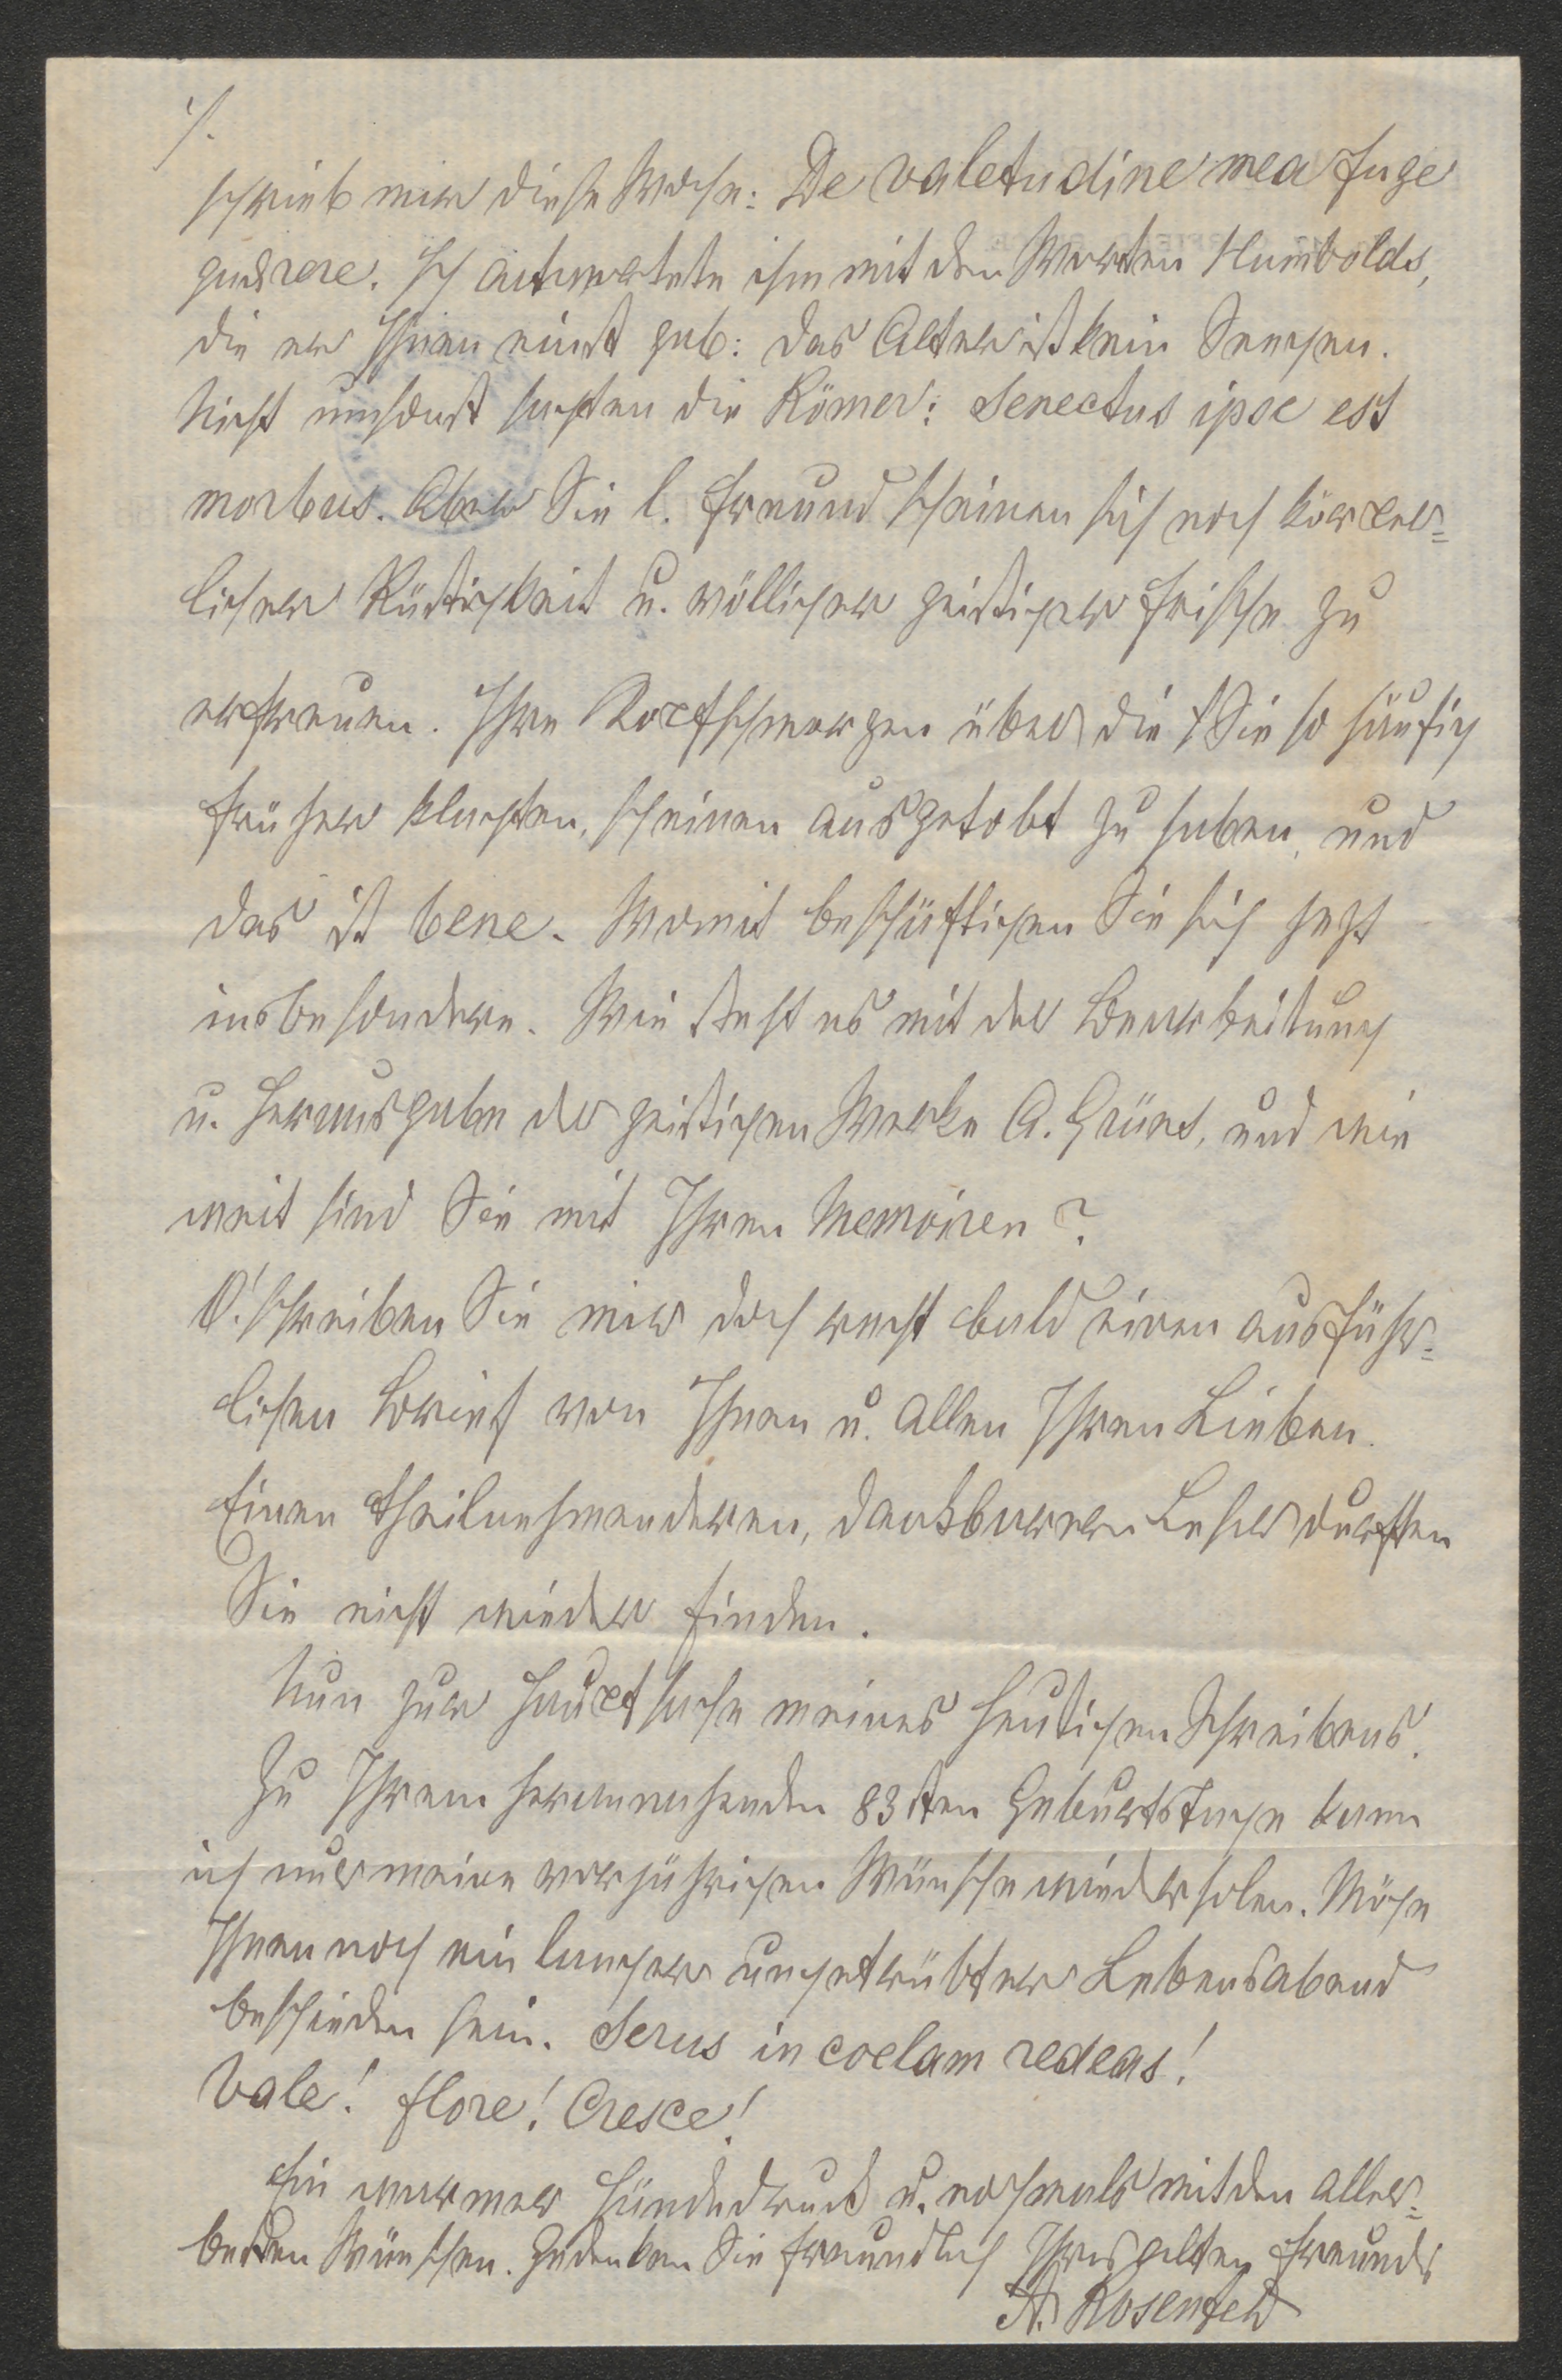 ./.
schrieb mir diese Woche: De valetudine mea fuge
quärere. Ich antwortete ihm mit den Worten Humbolds,
die er Ihnen einst gab: das Alter ist kein Seegen.
Nicht umsonst sagten die Römer: Senectus ipse est
morbus. Aber Sie l. Freund scheinen sich noch körper=
licher Rüstigkeit u. völliger geistiger Frische zu
erfreuen. Ihre Kopfschmerzen über die Sie so häufig
früher klagten, scheinen ausgetobt zu haben, und
das ist bene. Womit beschäftigen Sie sich jetzt
insbesondere. Wie steht es mit der Bearbeitung
u. Herausgabe der geistigen Werke A. Grüns, und wie
weit sind Sie mit Ihren Memoiren?
O! schreiben Sie mir doch recht bald einen ausführ=
lichen Brief von Ihnen u. allen Ihren Lieben.
Einen theilnehmenderen, dankbareren Leser durften
Sie nicht wieder finden.
Nun zur Hauptsache meines heutigen Schreibens.
Zu Ihrem herannahenden 83sten Geburtstage kann
ich nur meine vorjährigen Wünsche wiederholen. Möge
Ihnen noch ein langer ungetrübter Lebensabend
beschieden sein. Serus in coelam redeas!
Vale! flore! Cresce!
Ein warmer Händedruck u. nochmals mit den aller=
besten Wünschen. Gedenken Sie freundlich Ihres alten Freunds
A. Rosenfeld